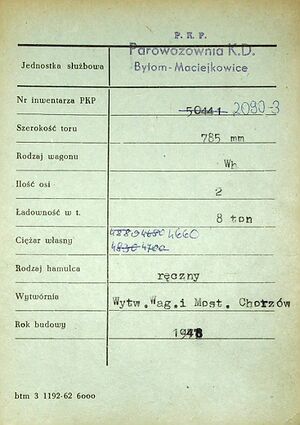 P. K. P.
Parowozownia K.D.
Jednostka służbowa Bytom-Maciejkowice
Nr inwentarza PKP 50441 2090-3
Szerokość toru 785 mm
Rodzaj wagonu Wh
Ilość osi 2
Ładowność w t. 8 ton
4880 4680 4660
Ciężar własny 4830 4700
Rodzaj hamulca ręczny
Wytwórnia Wytw.Wag.i Most. Chorzów
Rok budowy
btm 3 1192-62 6000